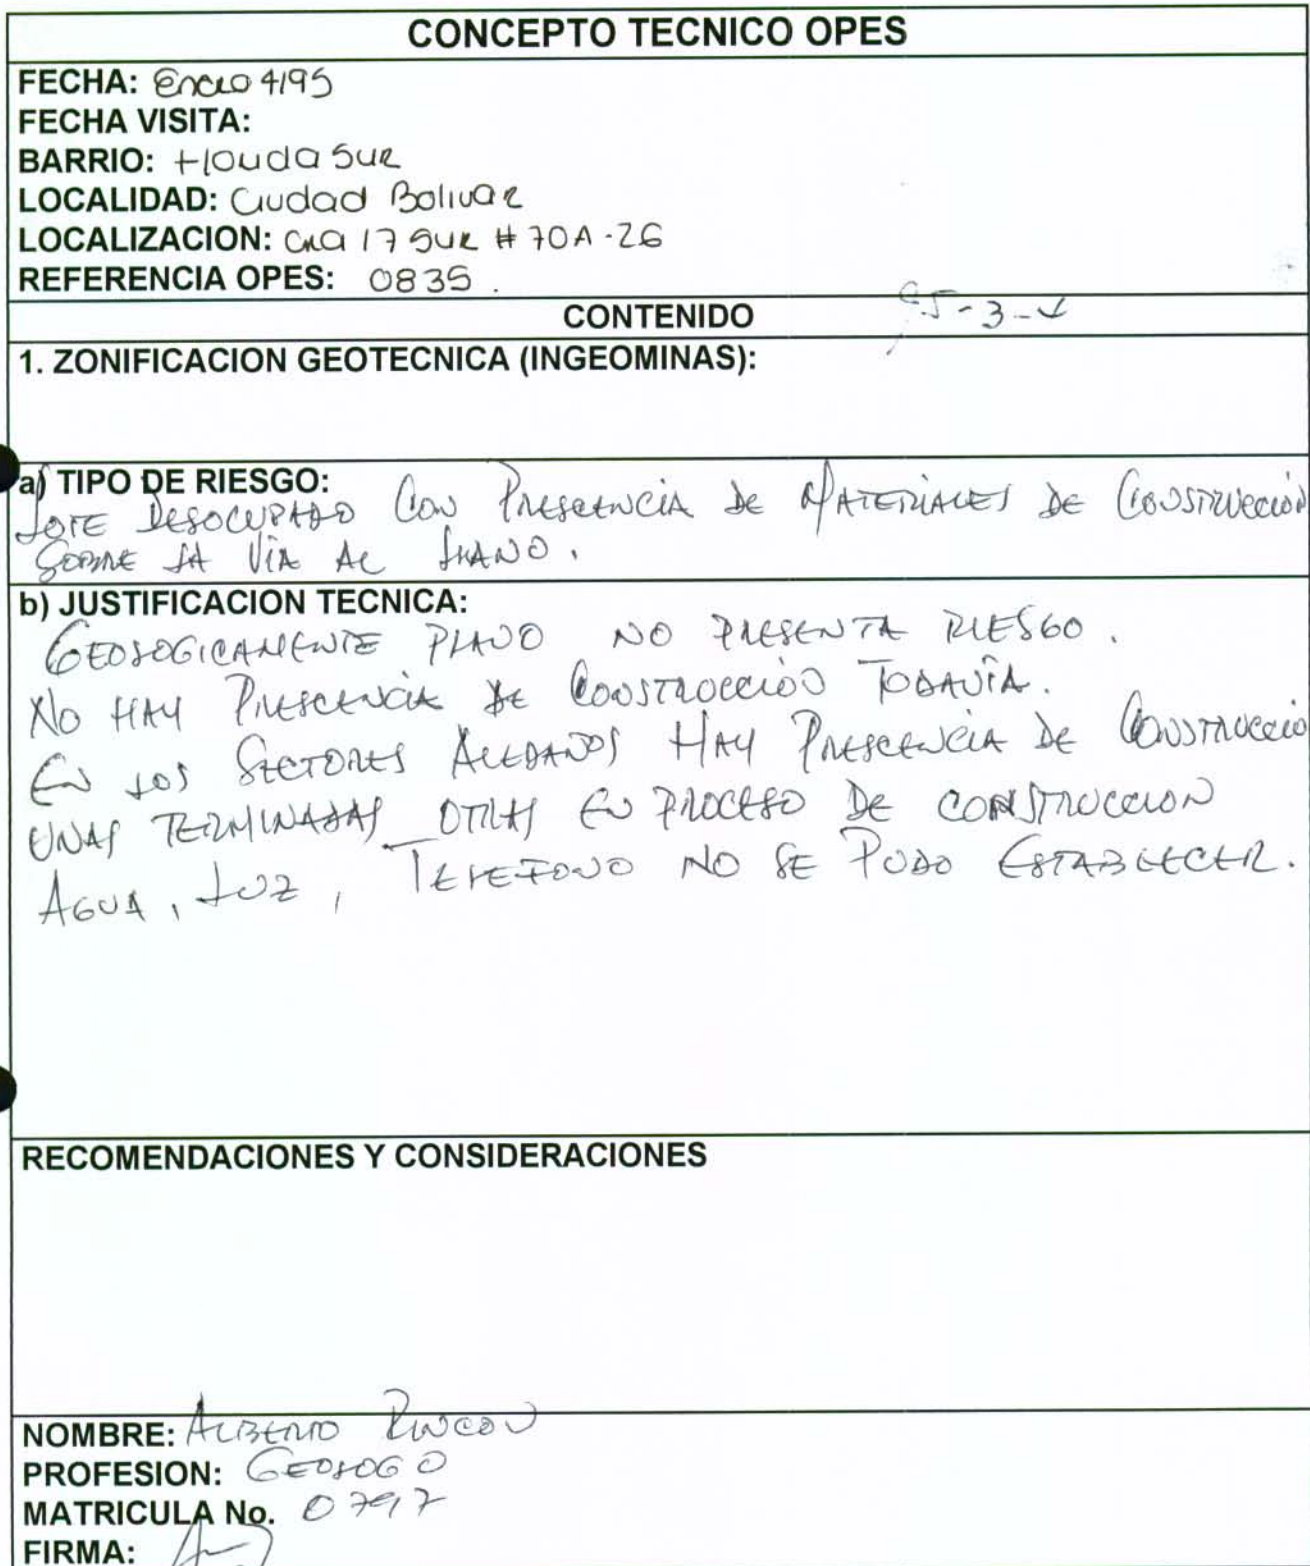 CONCEPTO TECNICO OPES
FECHA: Enero 4/95
FECHA VISITA:
BARRIO: Honda Sur
LOCALIDAD: Ciudad Bolivar
LOCALIZACION: Cra 17 Sur # 70A-26
REFERENCIA OPES: 0835.
CONTENIDO
1. ZONIFICACION GEOTECNICA (INGEOMINAS):
a) TIPO DE RIESGO:
LOTE DESOCUPADO CON PRESCENCIA DE MATERIALES DE CONSTRUCCIÓN
SOBRE LA VÍA AL LLANO.
b) JUSTIFICACION TECNICA:
GEOLOGICAMENTE PLANO NO PRESENTA RIESGO.
NO HAY PRESCENCIA DE CONSTRUCCIÓN TODAVÍA.
EN LOS SECTORES ALEDAÑOS HAY PRESCENCIA DE CONSTRUCCIO
UNAS TERMINADAS OTRAS EN PROCESO DE CONSTRUCCION
AGUA, LUZ, TELEFONO NO SE PUDO ESTABLECER.
RECOMENDACIONES Y CONSIDERACIONES
NOMBRE: ALBERTO RINCON
PROFESION: GEOLOGO
MATRICULA No. 0797
FIRMA: